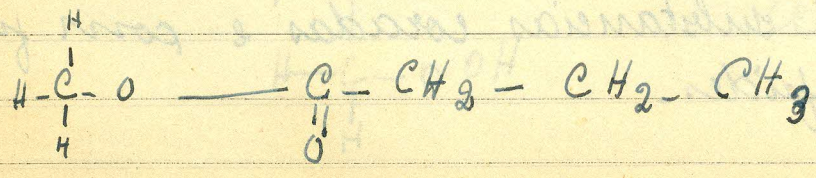 H
H-C-O — C - CH2 - CH2 - CH3
H O